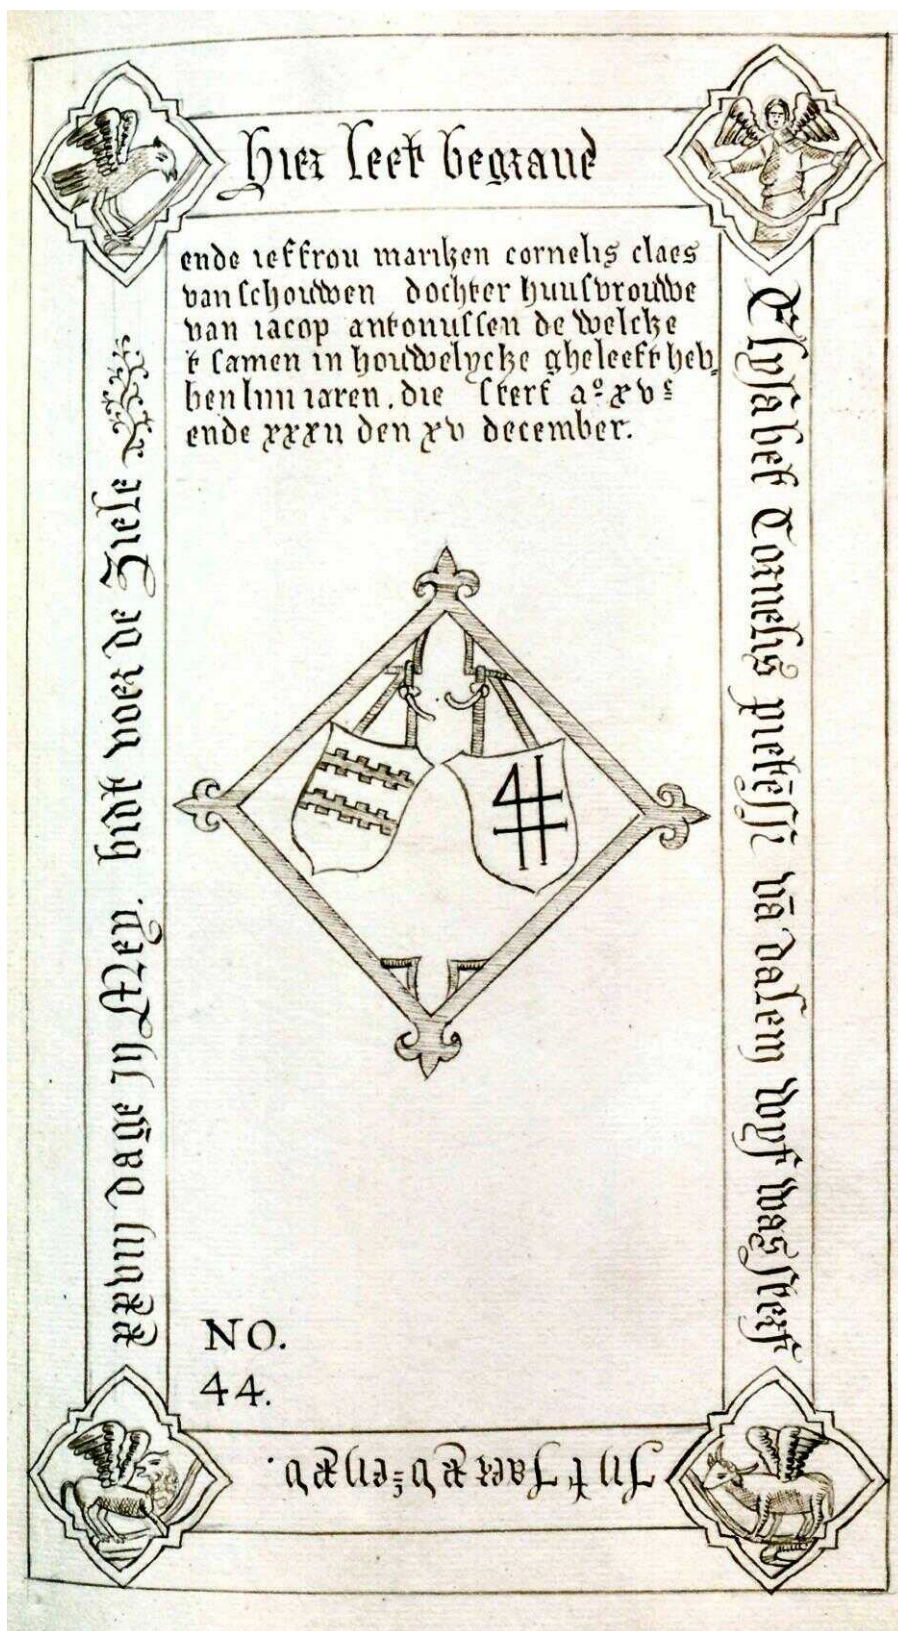 Hier leet begrauē
Elysabet Cornelis pietēssē vā dalem wyf was sterf
Int Jaer xvᶜ en xv.
xxviij dage in Mey. bidt voer de Ziele
ende ieffrou mariken cornelis claes
van schouwen dochter huusvrouwe
van iacop antonissen de welcke
t samen in houwelycke gheleeft heb,
ben liiii iaren. die sterf aº xvᶜ
ende xxxii den xv december.
NO.
44.